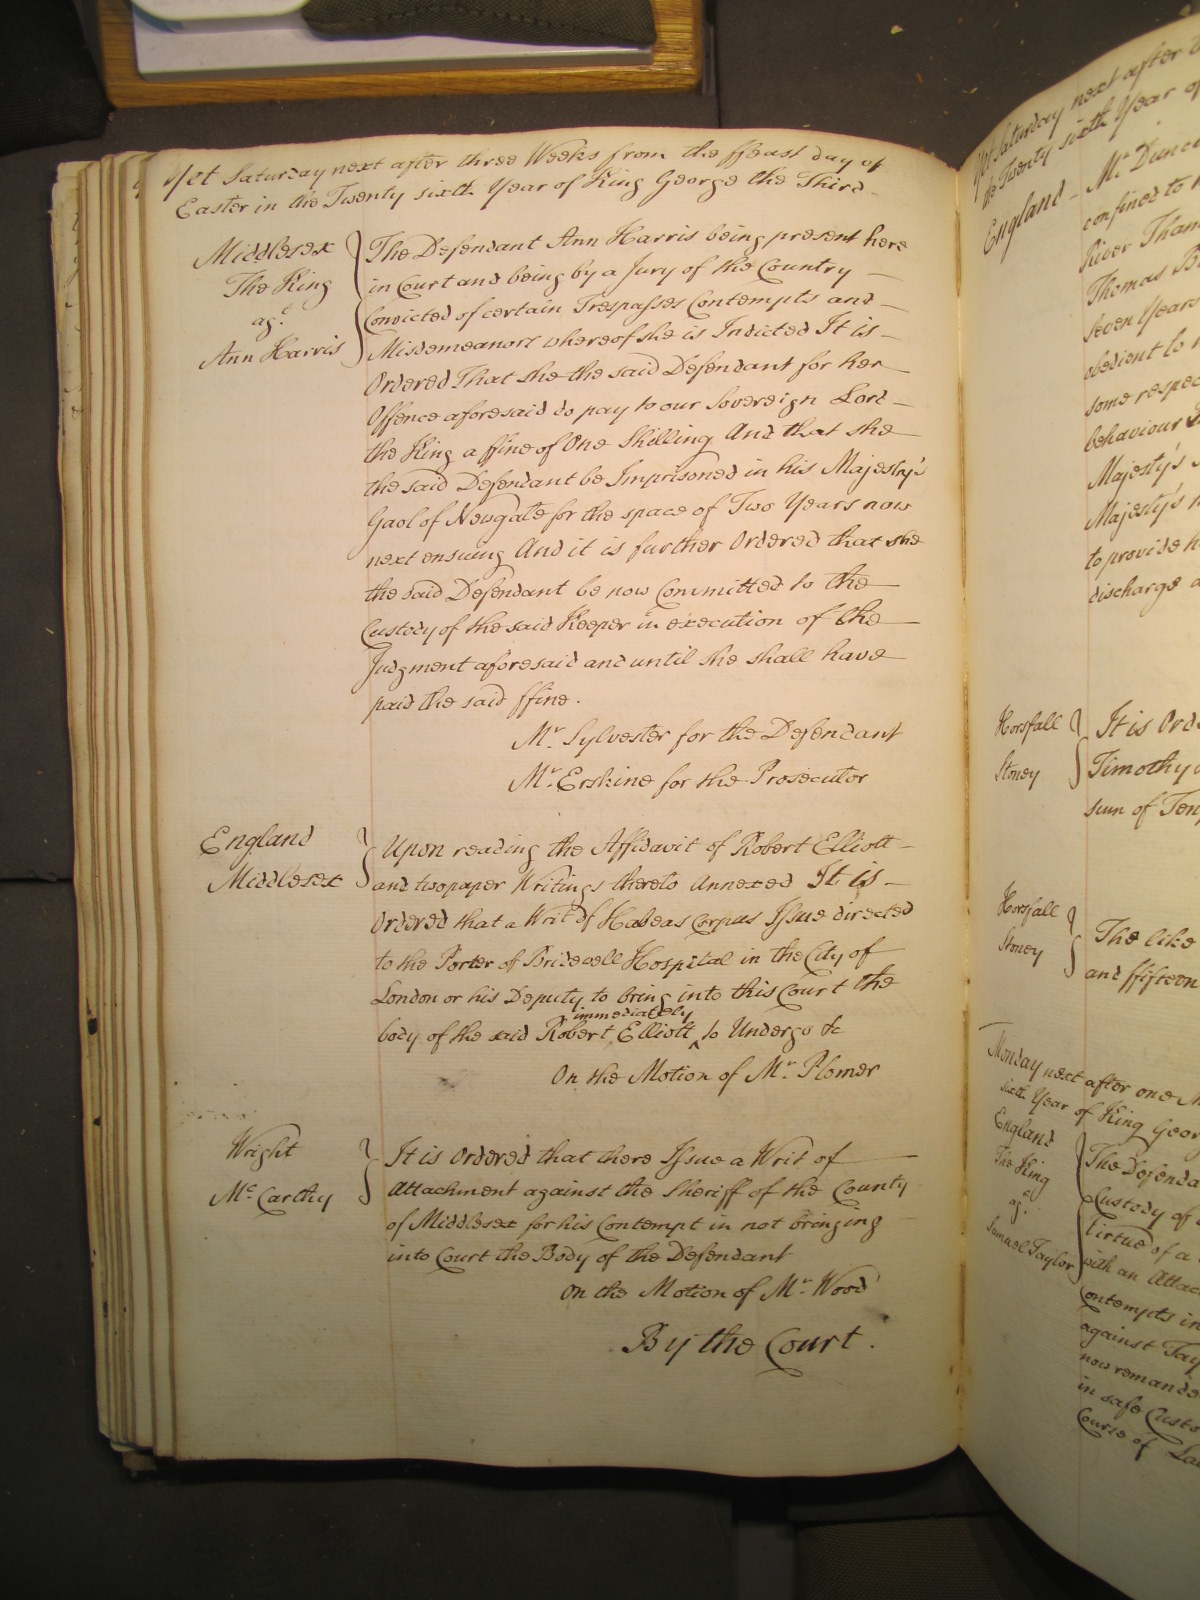 Yet Saturday next after three Weeks from the ffeast day of
Easter in the Twenty sixth Year of King George the Third
Middlesex
The King
agt
Ann Harris
The Defendant Ann Harris being present here
in Court and being by a Jury of the Country
Convicted of certain Trespasses Contempts and
Misdemeanors whereof she is Indicted It is
Ordered That she the said Defendant for her
Offence aforesaid do pay to our Sovereign Lord
the King a ffine of One Shilling And that she
the said Defendant be Imprisoned in his Majesty's
Gaol of Newgate for the space of Two Years now
next ensuing And it is further Ordered that she
the said Defendant be now Committed to the
Custody of the said Keeper in execution of the
Judgment aforesaid and until she shall have
paid the said ffine.
Mr. Sylvester for the Defendant
Mr. Erskine for the Prosecutor
England
Middlesex
Upon reading the Affidavit of Robert Elliott
and two paper Writings thereto Annexed It is
Ordered that a Writ of Habeas Corpus Issue directed
to the Porter of Bridewell Hospital in the City of
London or his Deputy to bring into this Court the
immediately
body of the said Robert Elliott ^ to Undergo &c
On the Motion of Mr. Plomer
Wright
McCarthy
It is Ordered that there Issue a Writ of
Attachment against the Sheriff of the County
of Middlesex for his Contempt in not bringing
into Court the Body of the Defendant
On the Motion of Mr. Wood
By the Court.
Yet Saturday next after
the Twenty sixth Year of
England
Mr Dunc
confined to
River Tham
Thomas B
Seven Years
obedient to
some respec
behaviour
Majesty's
Majesty's
to provide h
discharge a
Horsfall
Stoney
It is Ord
Timothy
sum of Ten
Horsfall
Stoney
The like
and ffifteen
Monday next after one M
sixth Year of King Geor
England
The King
agt.
Samuel Taylor
The Defenda
Custody of
virtue of a
with an Attac
Contempts in
against Tay
now remande
in safe Custo
Course of La